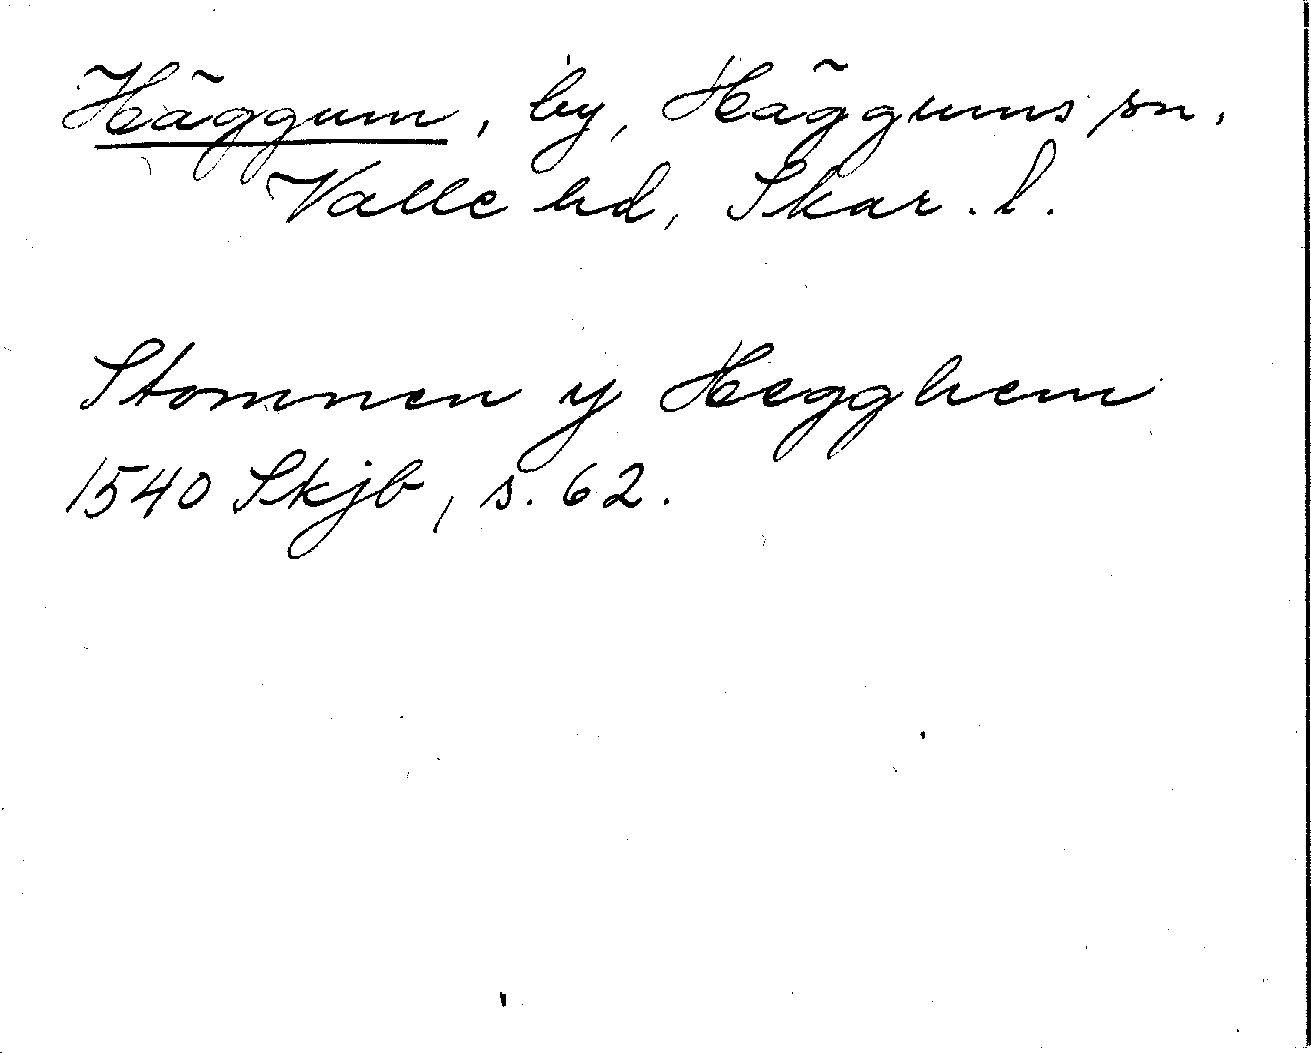 Häggum, by, Häggums sn,
Valle hd, Skar. l.
Stommen y Hegghem
1540 Skjb, s. 62.